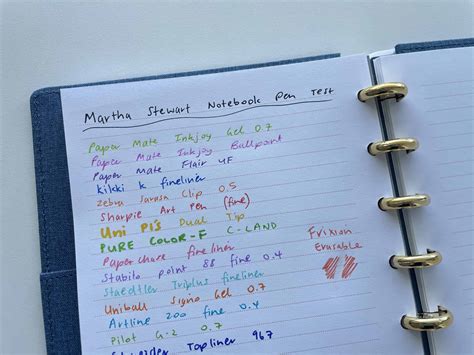 Martha Stewart Notebook Pen Test
Paper Mate Inkjoy Gel 0.7
Paper Mate Inkjoy Ballpoint
Paper Mate Flair UF
kikki k fineliner
Zebra Sarasa Clip 0.5
Sharpie Art Pen (fine)
Uni Pi:s Dual Tip
PURE COLOR-F C-LAND
Paperchase fineliner
Stabilo point 88 fine 0.4
Staedtler Triplus fineliner
Uniball Signo Gel 0.7
Artline 200 fine 0.4
Pilot G-2 0.7
Schneider Topliner 967
Frixion
Erasable